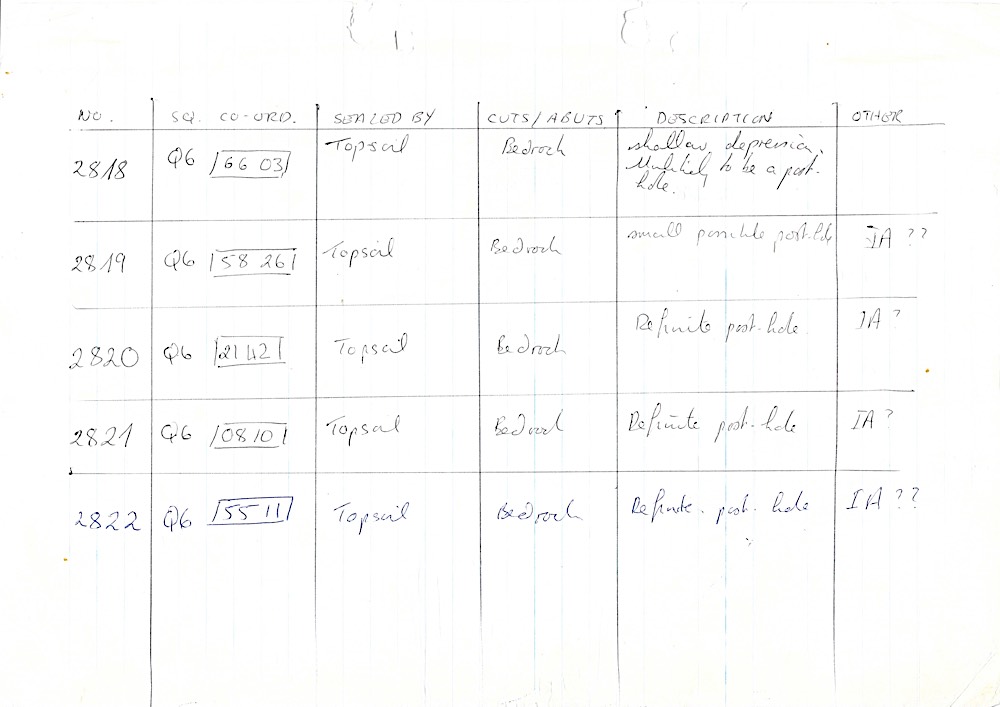 NO. SQ. CO-ORD. SEALED BY CUTS/ABUTS DESCRIPTION OTHER
2818 Q6 66 03 Topsoil Bedrock shallow depression.
Unlikely to be a post-
hole.
2819 Q6 58 26 Topsoil Bedrock small possible post-hole IA ??
2820 Q6 21 42 Topsoil Bedrock Definite post-hole IA ?
2821 Q6 08 10 Topsoil Bedrock Definite post-hole IA ?
2822 Q6 55 11 Topsoil Bedrock Definite post-hole IA ??